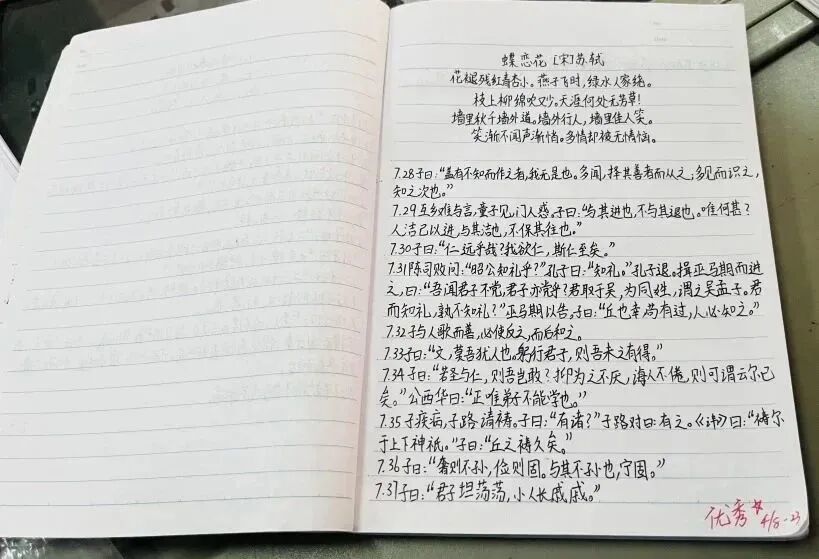 蝶恋花 [宋]苏轼
花褪残红青杏小。燕子飞时,绿水人家绕。
枝上柳绵吹又少。天涯何处无芳草!
墙里秋千墙外道。墙外行人,墙里佳人笑。
笑渐不闻声渐悄。多情却被无情恼。
7.28子曰:“盖有不知而作之者,我无是也。多闻,择其善者而从之;多见而识之,
知之次也。”
7.29互乡难与言,童子见,门人惑。子曰:“与其进也,不与其退也。唯何甚?
人洁己以进,与其洁也,不保其往也。”
7.30子曰:“仁远乎哉?我欲仁,斯仁至矣。”
7.31陈司败问:“昭公知礼乎?”孔子曰:“知礼。”孔子退。揖巫马期而进
之,曰:“吾闻君子不党,君子亦党乎?君取于吴,为同姓,谓之吴孟子。君
而知礼,孰不知礼?”巫马期以告,子曰:“丘也幸,苟有过,人必知之。”
7.32子与人歌而善,必使反之,而后和之。
7.33子曰:“文,莫吾犹人也。躬行君子,则吾未之有得。”
7.34子曰:“若圣与仁,则吾岂敢?抑为之不厌,诲人不倦,则可谓云尔已
矣。”公西华曰:“正唯弟子不能学也。”
7.35子疾病,子路请祷。子曰:“有诸?”子路对曰:有之。《讳》曰:“祷尔
于上下神祇。”子曰:“丘之祷久矣。”
7.36子曰:“奢则不孙,俭则固。与其不孙也,宁固。”
7.37子曰:“君子坦荡荡,小人长戚戚。”
优秀 4/8-23